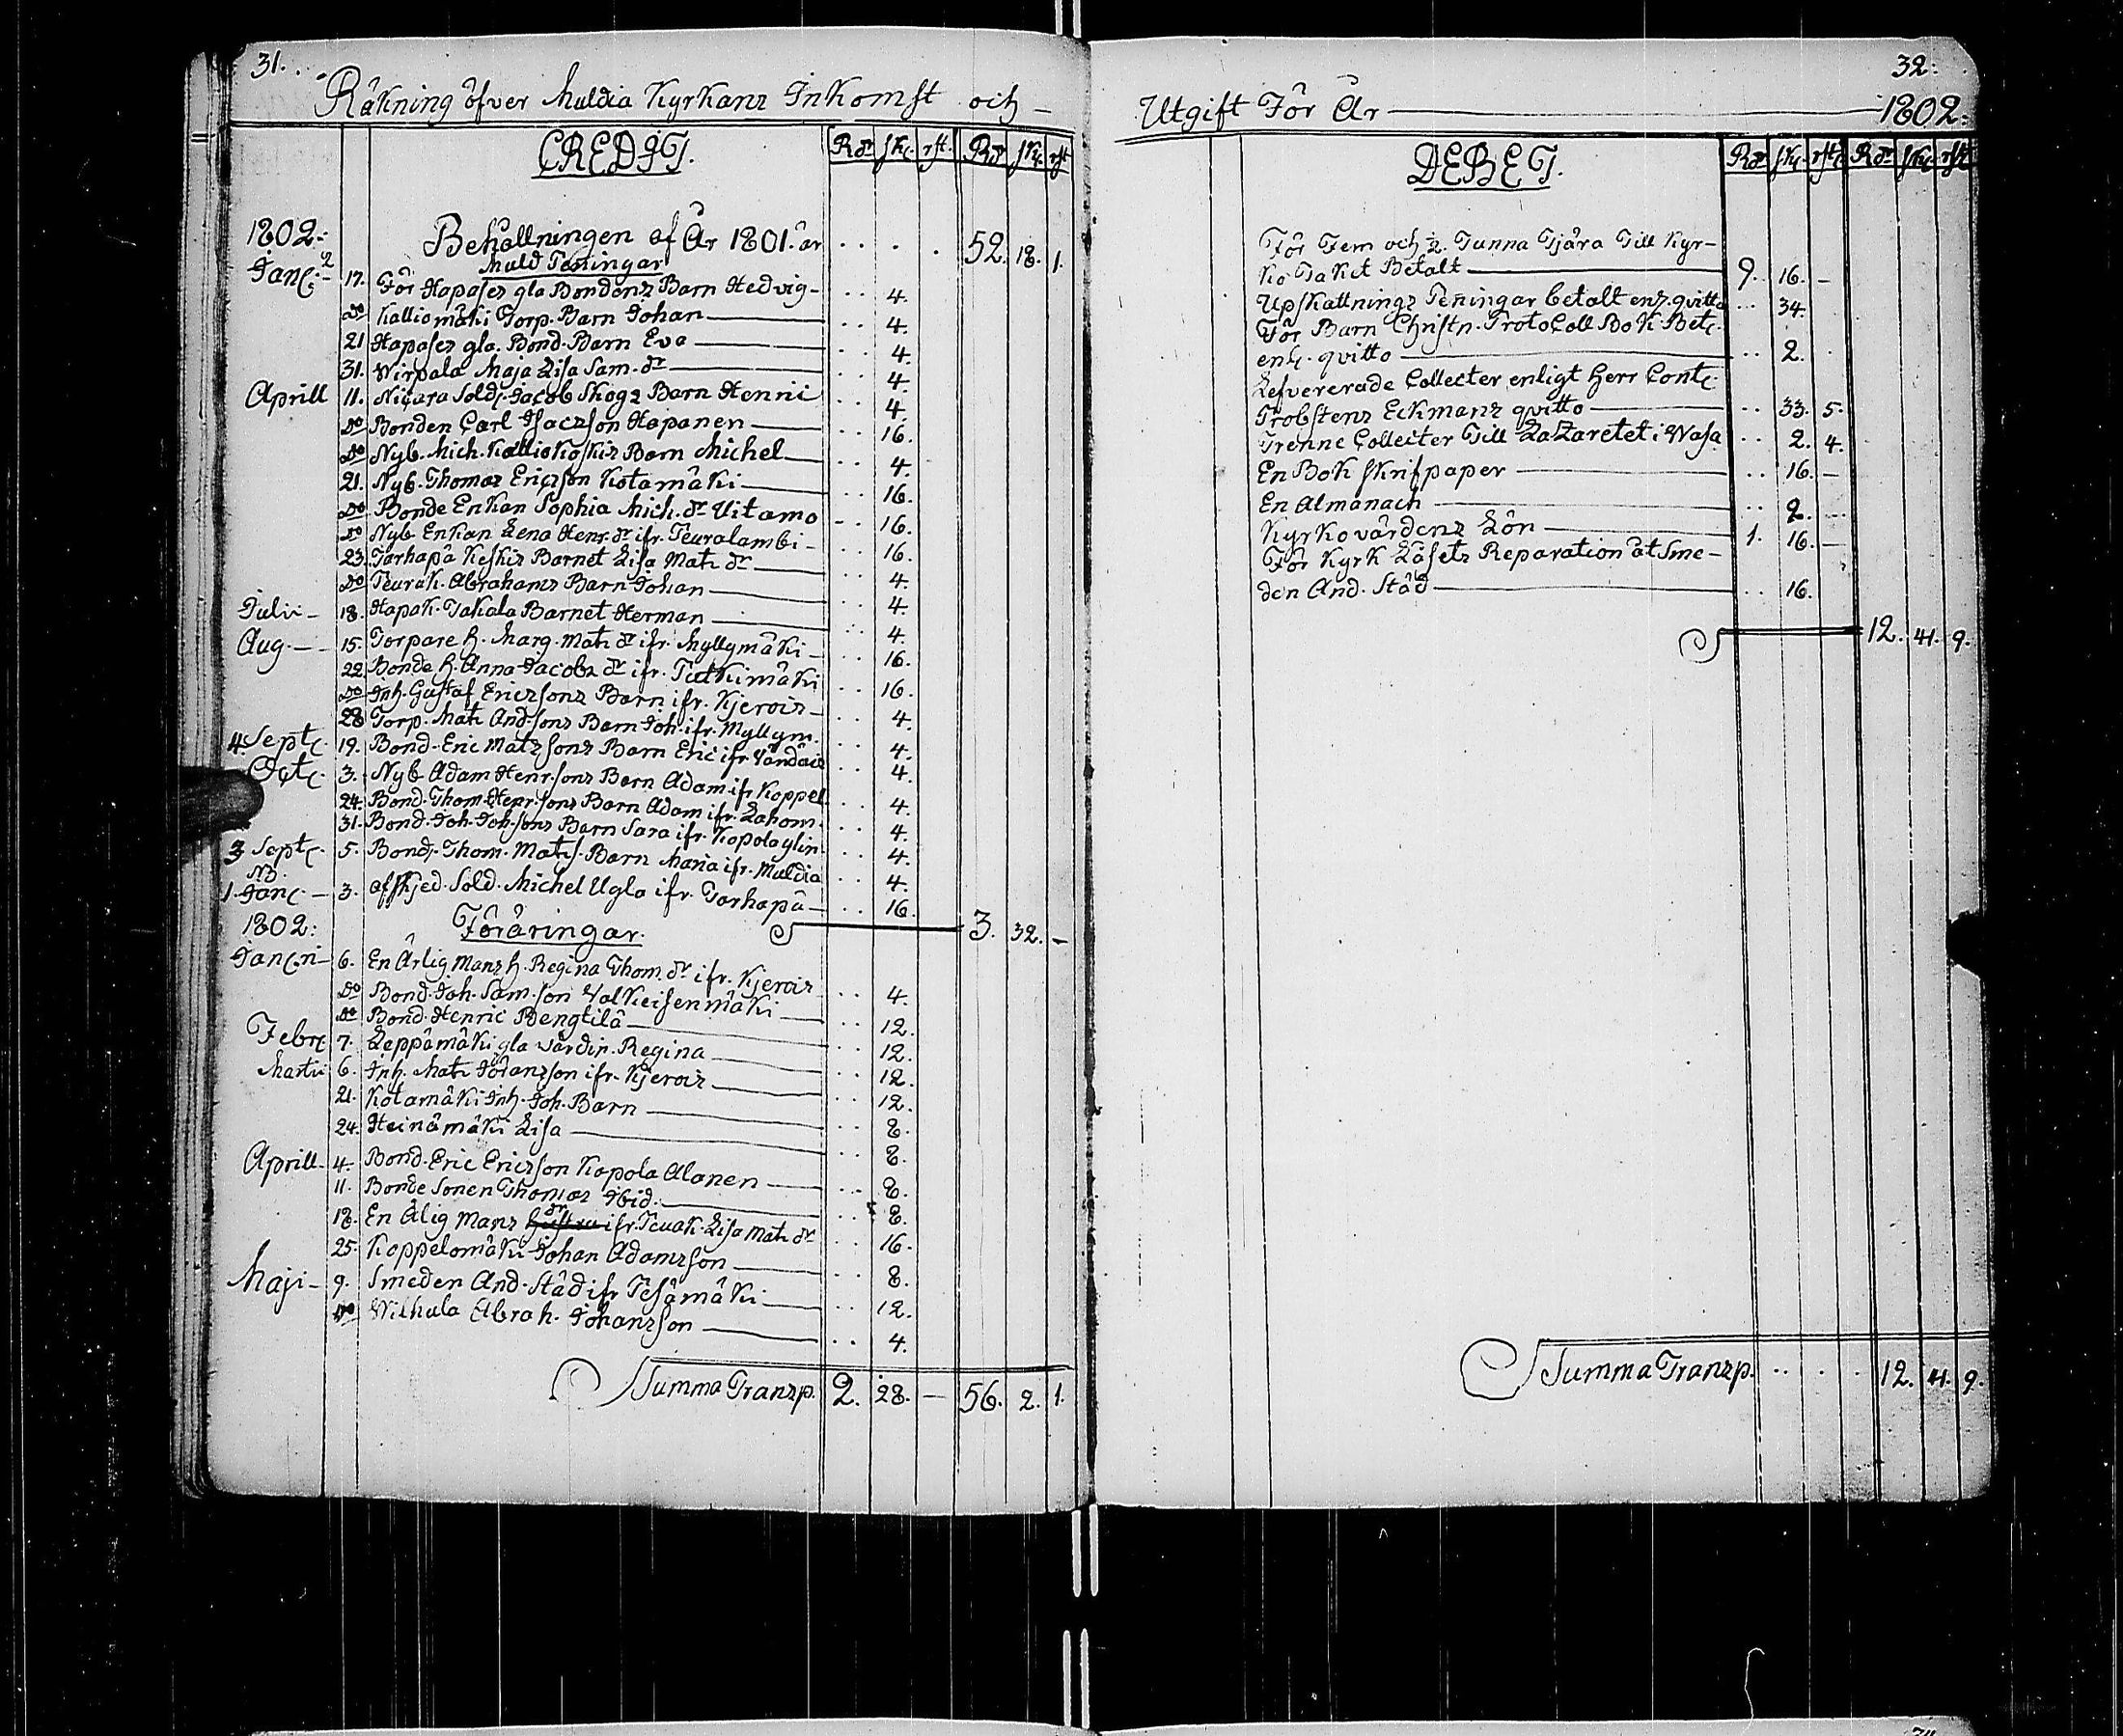 31.
Räkning öfver Muldia Kyrkans Inkomst och
CREDIT. Rdr sk. rst. Rdr sk. rst
1802:
Behållningen af År 1801. är . . . . 52. 18. 1.
Muld Peningar
Janc: 17. För Hapases gla Bondens Barn Hedvig - . . 4.
do Kalliomäki Torp. Barn Johan . . 4.
21 Hapases gla. Bond. Barn Eva . . 4.
31. Wirpala Maja Lisa Sam. dr . . 4.
Aprill 11. Niçara Sold. Jacob Skogs Barn Henric . . 4.
do Bonden Carl Isacsson Hapanen . . 16.
do Nyb. Mich. Kalliokoskis Barn Michel . . 4.
21. Nyb. Thomas Ericsson Kotamäki . . 16.
do Bonde Enkan Sophia Mich. dr Uitamo . . 16.
do Nyb. Enkan Lena Henr. dr ifr. Peuralambi . . 16.
23. Tarhapä Keskis Barnet Lisa Mats dr . . 4.
do Peurak. Abrahams Barn Johan . . 4.
Julii 18. Hapak. Takala Barnet Herman . . 4.
Aug. 15. Torpare h. Marg. Mats dr ifr. Myllymäki . . 16.
22. Bonde h. Anna Jacobs dr ifr. Pulkimäki . . 16.
do Inh. Gustaf Ericssons Barn ifr. Kjerois . . 4.
28 Torp. Mats And.sons Barn Joh. ifr. Myllym. . . 4.
4. Septc. 19. Bond. Eric Matssons Barn Eric ifr . . 4.
Octc. 3. Nyb Adam Henr.sons Barn Adam ifr Koppel. . . 4.
24. Bond. Thom Henr.sons Barn Adam ifr. Lahom. . . 4.
31. Bond. Joh. Joh.sons Barn Sara ifr. Kopola ylin. . . 4.
3 Septc. 5. Bond. Thom. Mats. Barn Maria ifr. Muldia . . 4.
NB.
1. Janc. 3. afskjed. Sold. Michel Ugla ifr. Tarhapä . . 16.
1802: Föräringar. 3. 32. -
Janc.ii 6. En Ärlig Mans h. Regina Thom. dr ifr. Kjerois . . 4.
do Bond. Joh. Sam.son Valkeisenmäki . . 12.
do Bond. Henric Bengtilä . . 12.
Febrc 7. Leppämäki gla värdin. Regina . . 12.
Martii 6. Inh. Mats Johansson ifr. Kjerois . . 12.
21. Kotamäki Inh. Joh. Barn . . 8.
24. Heinämäki Lisa . . 8.
Aprill 4. Bond. Eric Ericsson Kopola Alanen . . 8.
11. Bonde Sonen Thomas Ibid. . . 8.
18. En Älig Mans dr ifr. Peuak. Lisa Mats dr . . 16.
25. Koppelomäki Johan Adamsson . . 8.
Maji 9. Smeden And. Städ ifr Pesämäki . . 12.
do Wilhula Abrah. Johansson . . 4.
Summa Transp. 2. 28. - 56. 2. 1.
32.
Utgift För År 1802.
DEBET. Rdr sk. rst. Rdr sk. rst
För Fem och ½. Tunna Tjära Till Kyr-
ko Taket Betalt 9. 16. -
Upskattnings Peningar betalt enl. qvitto . . 34.
För Barn Christn. Protocoll Bok Betc.
enl. qvitto . . 2.
Lefvererade Collecter enligt Herr Contc.
Probstens Eckmans qvitto . . 33. 5.
Trenne Collecter Till Lazaretet i Wasa . . 2. 4.
En Bok skrifpaper . . 16. -
En Almanach . . 2. -
Kyrkovärdens Lön 1. 16. -
För Kyrk Låsets Reparation åt Sme-
den And. Städ . . 16.
12. 41. 9.
Summa Transp. . . . . 12. 41. 9.